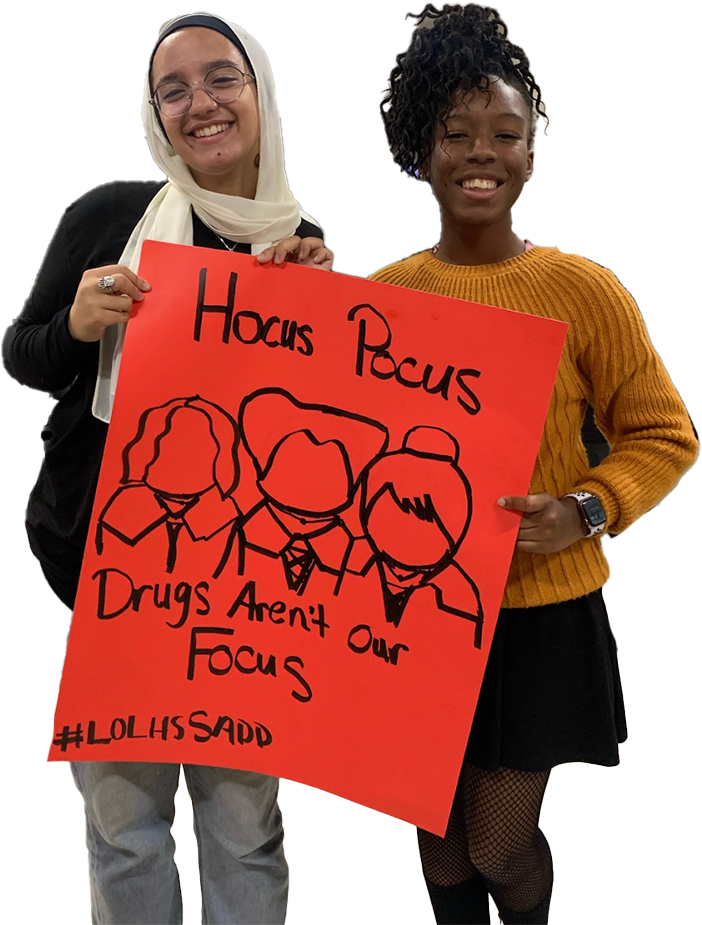 Hocus Pocus
Drugs Aren't Our
Focus
#LOLHSSADD